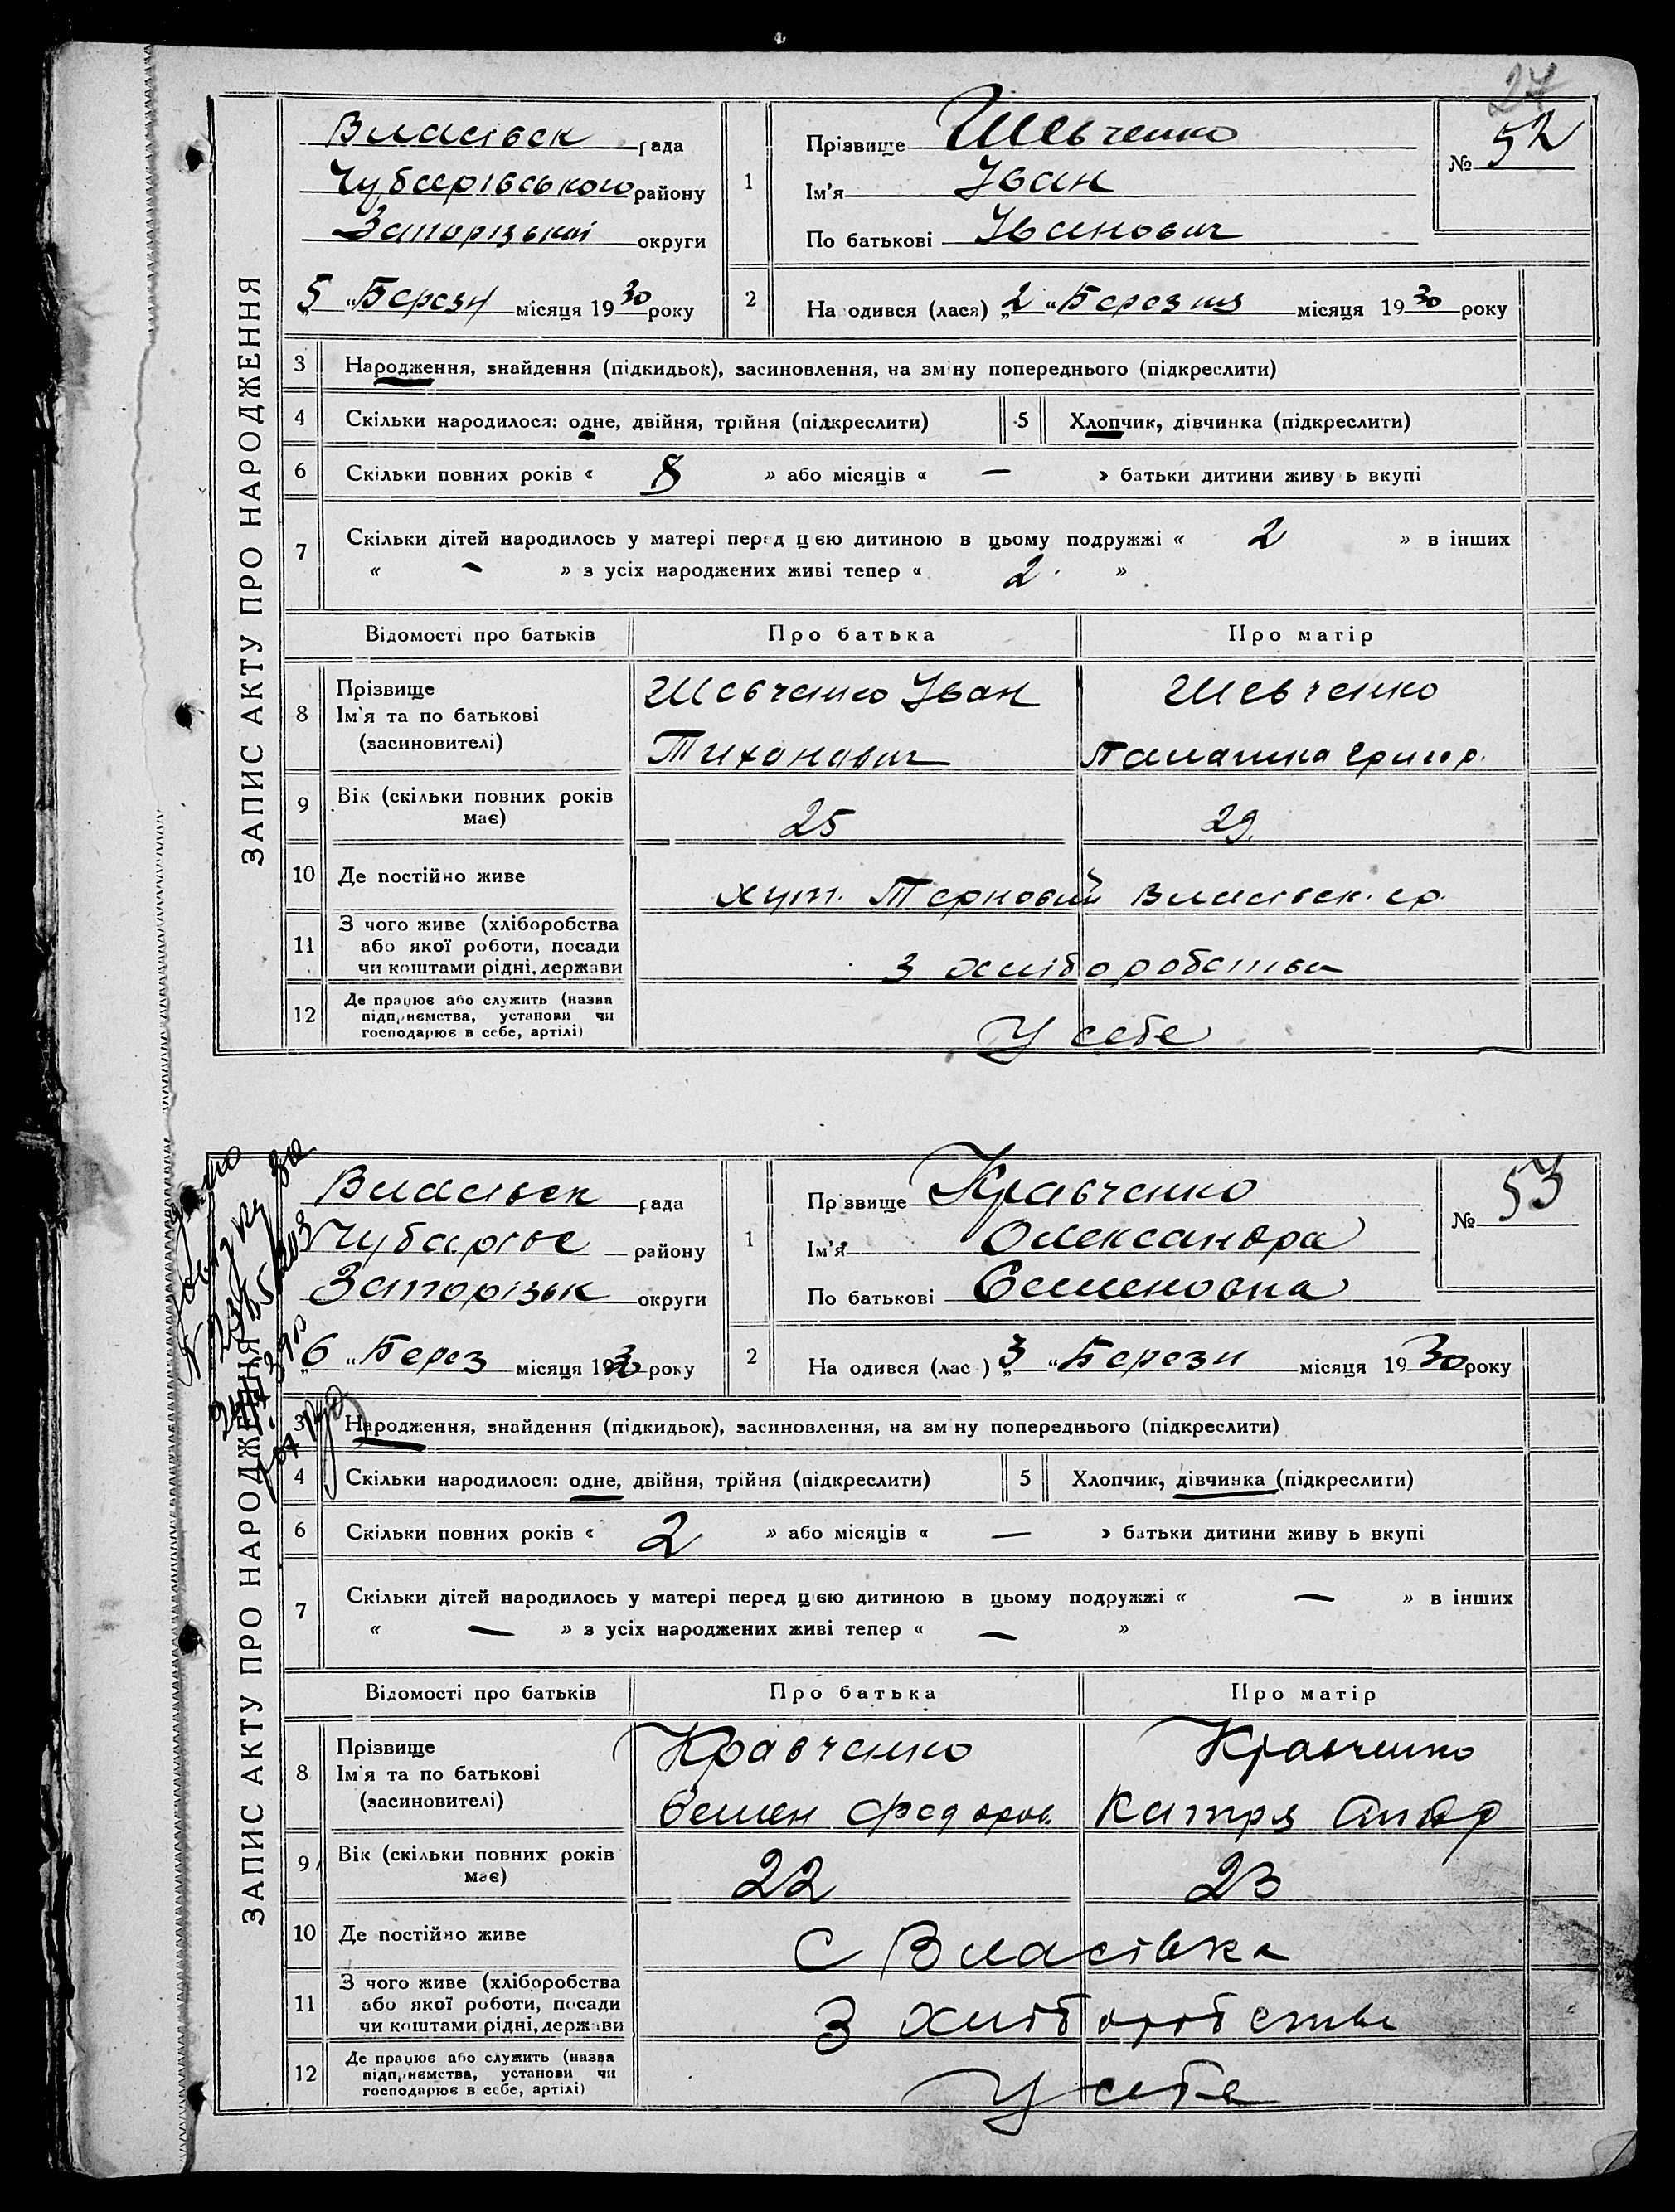 27
ЗАПИС АКТУ ПРО НАРОДЖЕННЯ
Власівск рада
Чубарівського району
Запорізький округи
„5 “ Березн місяця 1930 року
1
Прізвище Шевченко
Ім'я Іван
По батькові Іванович
№ 52
2
На одився (лася) „2 “ Березня місяця 1930 року
3 Народження, знайдення (підкидьок), засиновлення, на зміну попереднього (підкреслити)
4 Скільки народилося: одне, двійня, трійня (підкреслити) 5 Хлопчик, дівчинка (підкреслити)
6 Скільки повних років « 8 » або місяців « — » батьки дитини живу ь вкупі
7 Скільки дітей народилось у матері перед цією дитиною в цьому подружжі « 2 » в інших
« - » з усіх народжених живі тепер « 2 »
Відомості про батьків Про батька Про матір
8 Прізвище
Ім'я та по батькові
(засиновителі)
Шевченко Іван
Тиханович
Шевченко
Палагина Григор.
9 Вік (скільки повних років
має)
25 29
10 Де постійно живе хут. Терновий Власівск. ср.
11 З чого живе (хліборобства
або якої роботи, посади
чи коштами рідні, держави
з хліборобства
12 Де працює або служить (назва
підприємства, установи чи
господарює в себе, артілі)
У себе
ЗАПИС АКТУ ПРО НАРОДЖЕННЯ
Власівск рада
Чубарівс району
Запорізьк округи
„6 “ Берез місяця 1930 року
1
Пр звище Кравченко
Ім'я Олександра
По батькові Семеновна
№ 53
2
На одився (лас ) „3 “ Березн місяця 1930 року
3 Народження, знайдення (підкидьок), засиновлення, на зм ну попереднього (підкреслити)
4 Скільки народилося: одне, двійня, трійня (підкреслити) 5 Хлопчик, дівчинка (підкреслити)
6 Скільки повних років « 2 » або місяців « — » батьки дитини живу ь вкупі
7 Скільки дітей народилось у матері перед цією дитиною в цьому подружжі « — » в інших
« — » з усіх народжених живі тепер « — »
Відомості про батьків Про батька Про матір
8 Прізвище
Ім'я та по батькові
(засиновителі)
Кравченко
Семен Федоров.
Кравченко
Катря Андр
9 Вік (скільки повних років
має)
22 23
10 Де постійно живе С Власівка
11 З чого живе (хліборобства
або якої роботи, посади
чи коштами рідні, держави
З хліборобства
12 Де працює або служить (назва
підприємства, установи чи
господарює в себе, артілі)
У себе